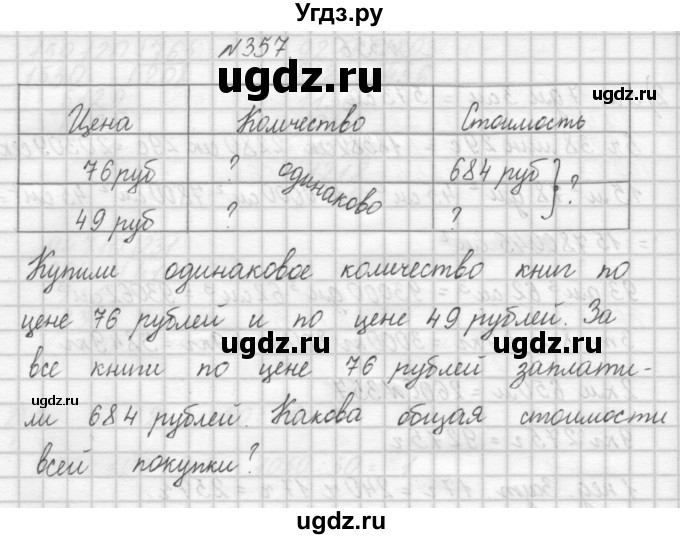 Угдз.ру
№357
ugdz.ru
ugdz.ru
ugdz.ru
Цена Количество Стоимость
76 руб ? одинаково 684 руб ?
49 руб ? ?
Купили одинаковое количество книг по
ugdz.ru
цене 76 рублей и по цене 49 рублей. За
ugdz.ru
все книги по цене 76 рублей заплати-
ugdz.ru
ли 684 рублей. Какова общая стоимости
всей покупки?
ugdz.ru
ugdz.ru
ugdz.ru